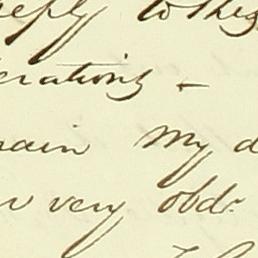 reply to this
erations -
main My d
r very obdr.